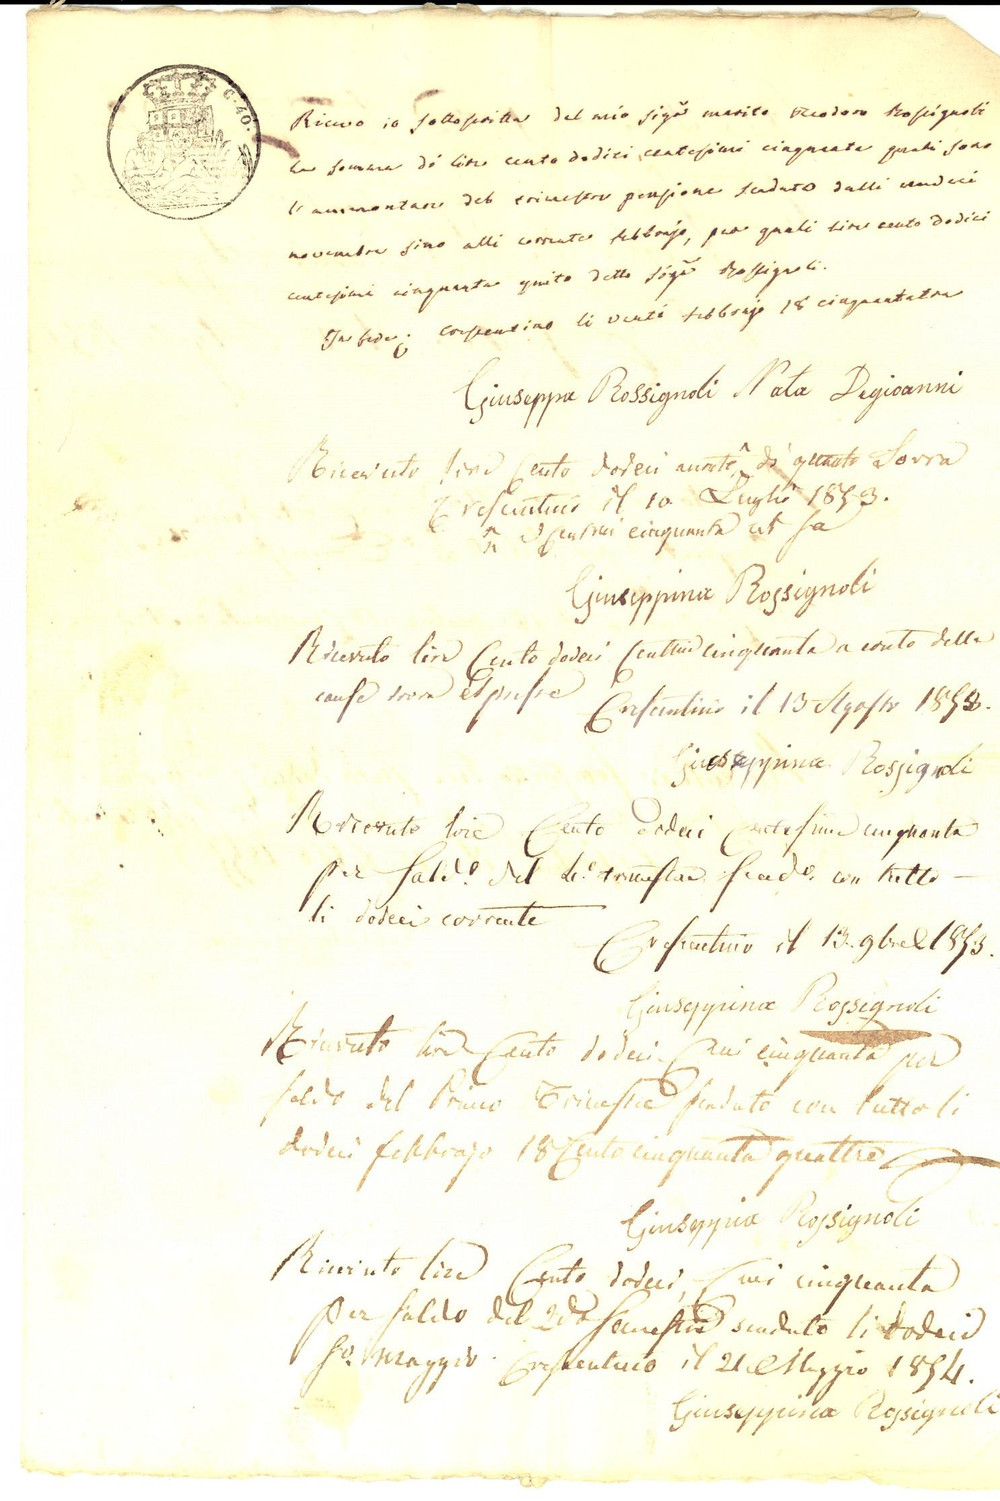 C. 40.
Ricevo io sottoscritta del mio sigr marito Teodoro Rossignoli
la somma di lire cento dodici centesimi cinquanta quali sono
l'ammontare del trimestre pensione scaduto dalli undeci
novembre sino alli corrente febbrajo, per quali lire cento dodici
centesimi cinquanta quito detto sigr Rossignoli.
In fede; Crescentino li venti febbrajo 18 cinquantatre
Giuseppa Rossignoli Nata Degioanni
Ricevuto lire Cento dodeci di quanto Sovra
Crescentino il 10 Luglio 1853.
centmi cinquanta
Giuseppina Rossignoli
Ricevuto lire Cento dodeci Centmi cinquanta a conto della
causa sovra espressa Crescentino il 13 Agosto 1853.
Giuseppina Rossignoli
Ricevuto lire Cento dodeci Centesimi cinquanta
per Saldo del trimestre Scado con tutto
li dodeci corrente
Crescentino il 13. 9bre 1853.
Giuseppina Rossignoli
Ricevuto lire Cento dodeci Cmi cinquanta per
saldo del Primo Trimestre scaduto con tutto li
dodeci febbrajo 18Cento cinquanta quattro
Giuseppina Rossignoli
Ricevuto lire Cento dodeci, Cmi cinquanta
per saldo del 2do Semestre scaduto li dodeci
Maggio. Crescentino il 21 Maggio 1854.
Giuseppina Rossignoli